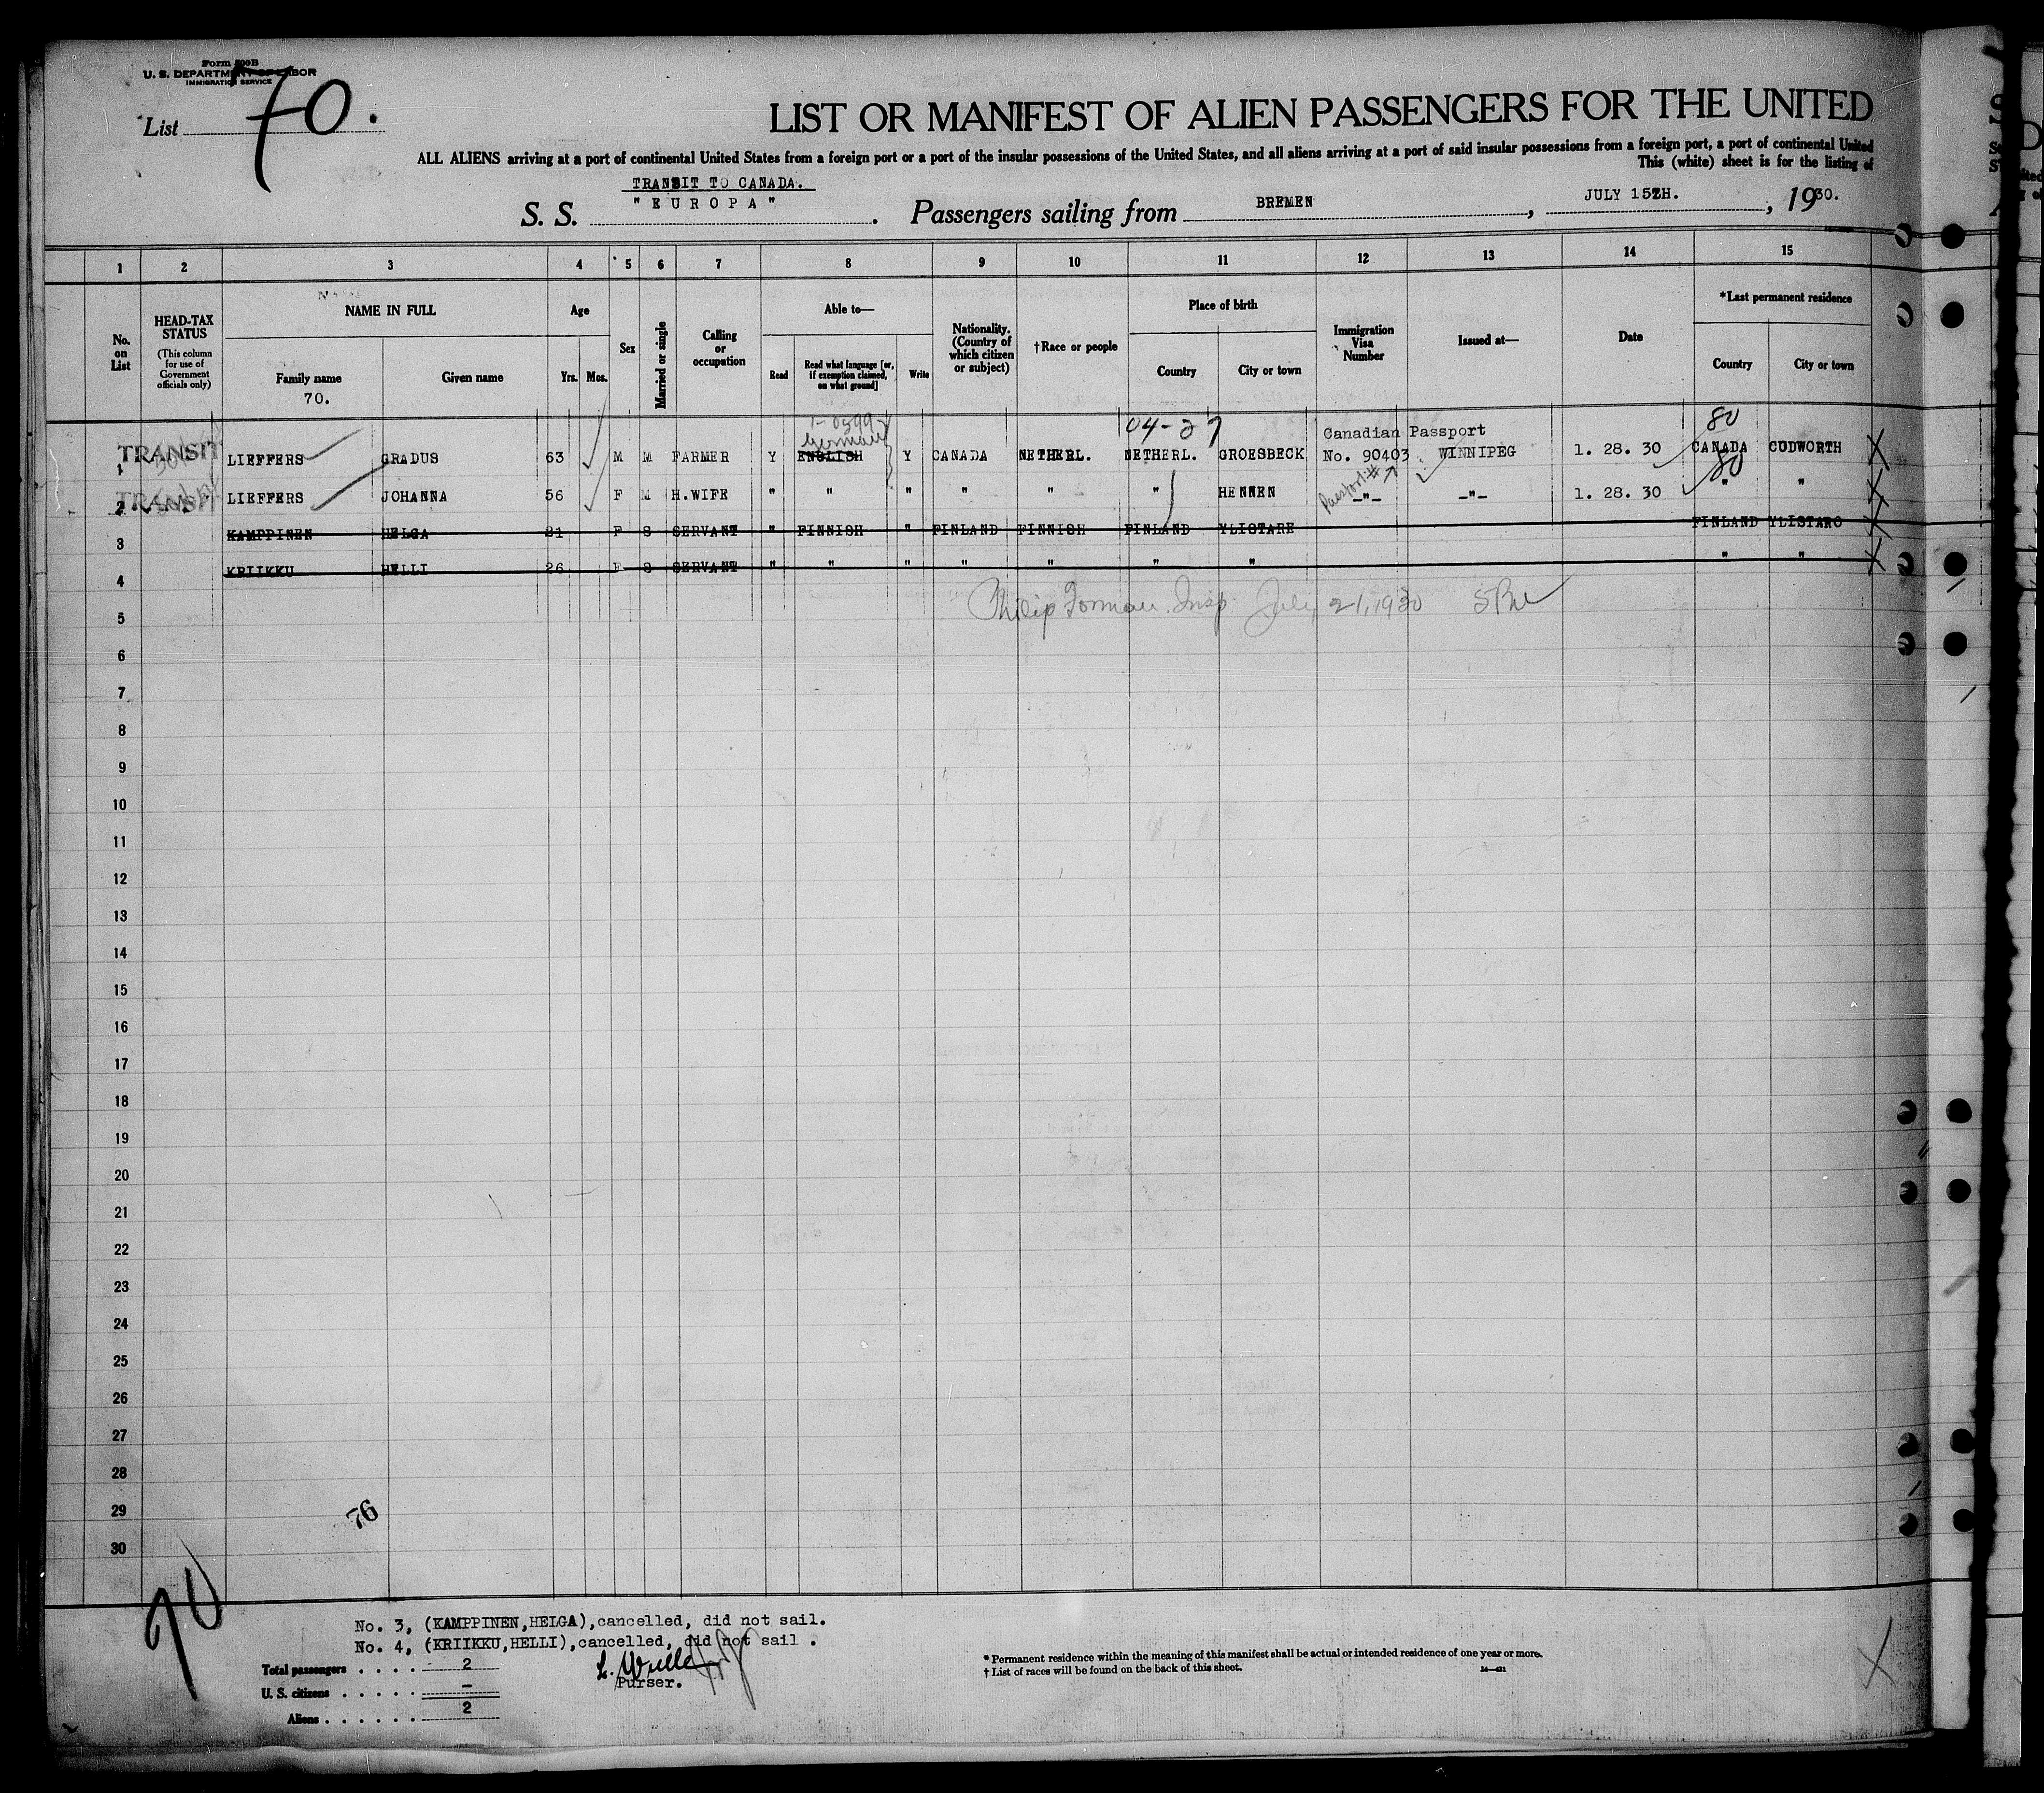 Form 500B
U. S. DEPARTMENT OF LABOR
IMMIGRATION SERVICE
List 70.
LIST OR MANIFEST OF ALIEN PASSENGERS FOR THE UNITED
ALL ALIENS arriving at a port of continental United States from a foreign port or a port of the insular possessions of the United States, and all aliens arriving at a port of said insular possessions from a foreign port, a port of continental United
This (white) sheet is for the listing of
TRANSIT TO CANADA.
S. S. "EUROPA". Passengers sailing from BREMEN, JULY 15ZH., 1930.
1 2 3 4 5 6 7 8 9 10 11 12 13 14 15
No. on List
HEAD-TAX STATUS
(This column for use of Government officials only)
NAME IN FULL
Family name
70.
Given name
Age
Yrs. Mos.
Sex
Married or single
Calling or occupation
Able to—
Read
Read what language [or, if exemption claimed, on what ground]
Write
Nationality. (Country of which citizen or subject)
†Race or people
Place of birth
Country
City or town
Immigration Visa Number
Issued at—
Date
*Last permanent residence
Country
City or town
04-27
80
Canadian Passport
German
TRANSIT
1 LIEFFERS GRADUS 63 M M FARMER Y ENGLISH Y CANADA NETHERL. NETHERL. GROESBECK No. 90403 WINNIPEG 1. 28. 30 CANADA CUDWORTH
80
TRANSIT
2 LIEFFERS JOHANNA 56 F M H.WIFE " " " " " " HENNEN Passport# -"- -"- 1. 28. 30 " "
3 KAMPPINEN HELGA 21 F S SERVANT " FINNISH " FINLAND FINNISH FINLAND YLISTARE FINLAND YLISTARO
4 KRIIKKU HELLI 26 F S SERVANT " " " " " " " " "
Philip Forman Insp. July 21, 1930
5
6
7
8
9
10
11
12
13
14
15
16
17
18
19
20
21
22
23
24
25
26
27
28
29
30
76
70
No. 3, (KAMPPINEN,HELGA),cancelled, did not sail.
No. 4, (KRIIKKU,HELLI),cancelled, did not sail .
Total passengers . . . . 2
U. S. citizens . . . . . —
Aliens . . . . . . 2
Purser.
* Permanent residence within the meaning of this manifest shall be actual or intended residence of one year or more.
† List of races will be found on the back of this sheet.
14—421